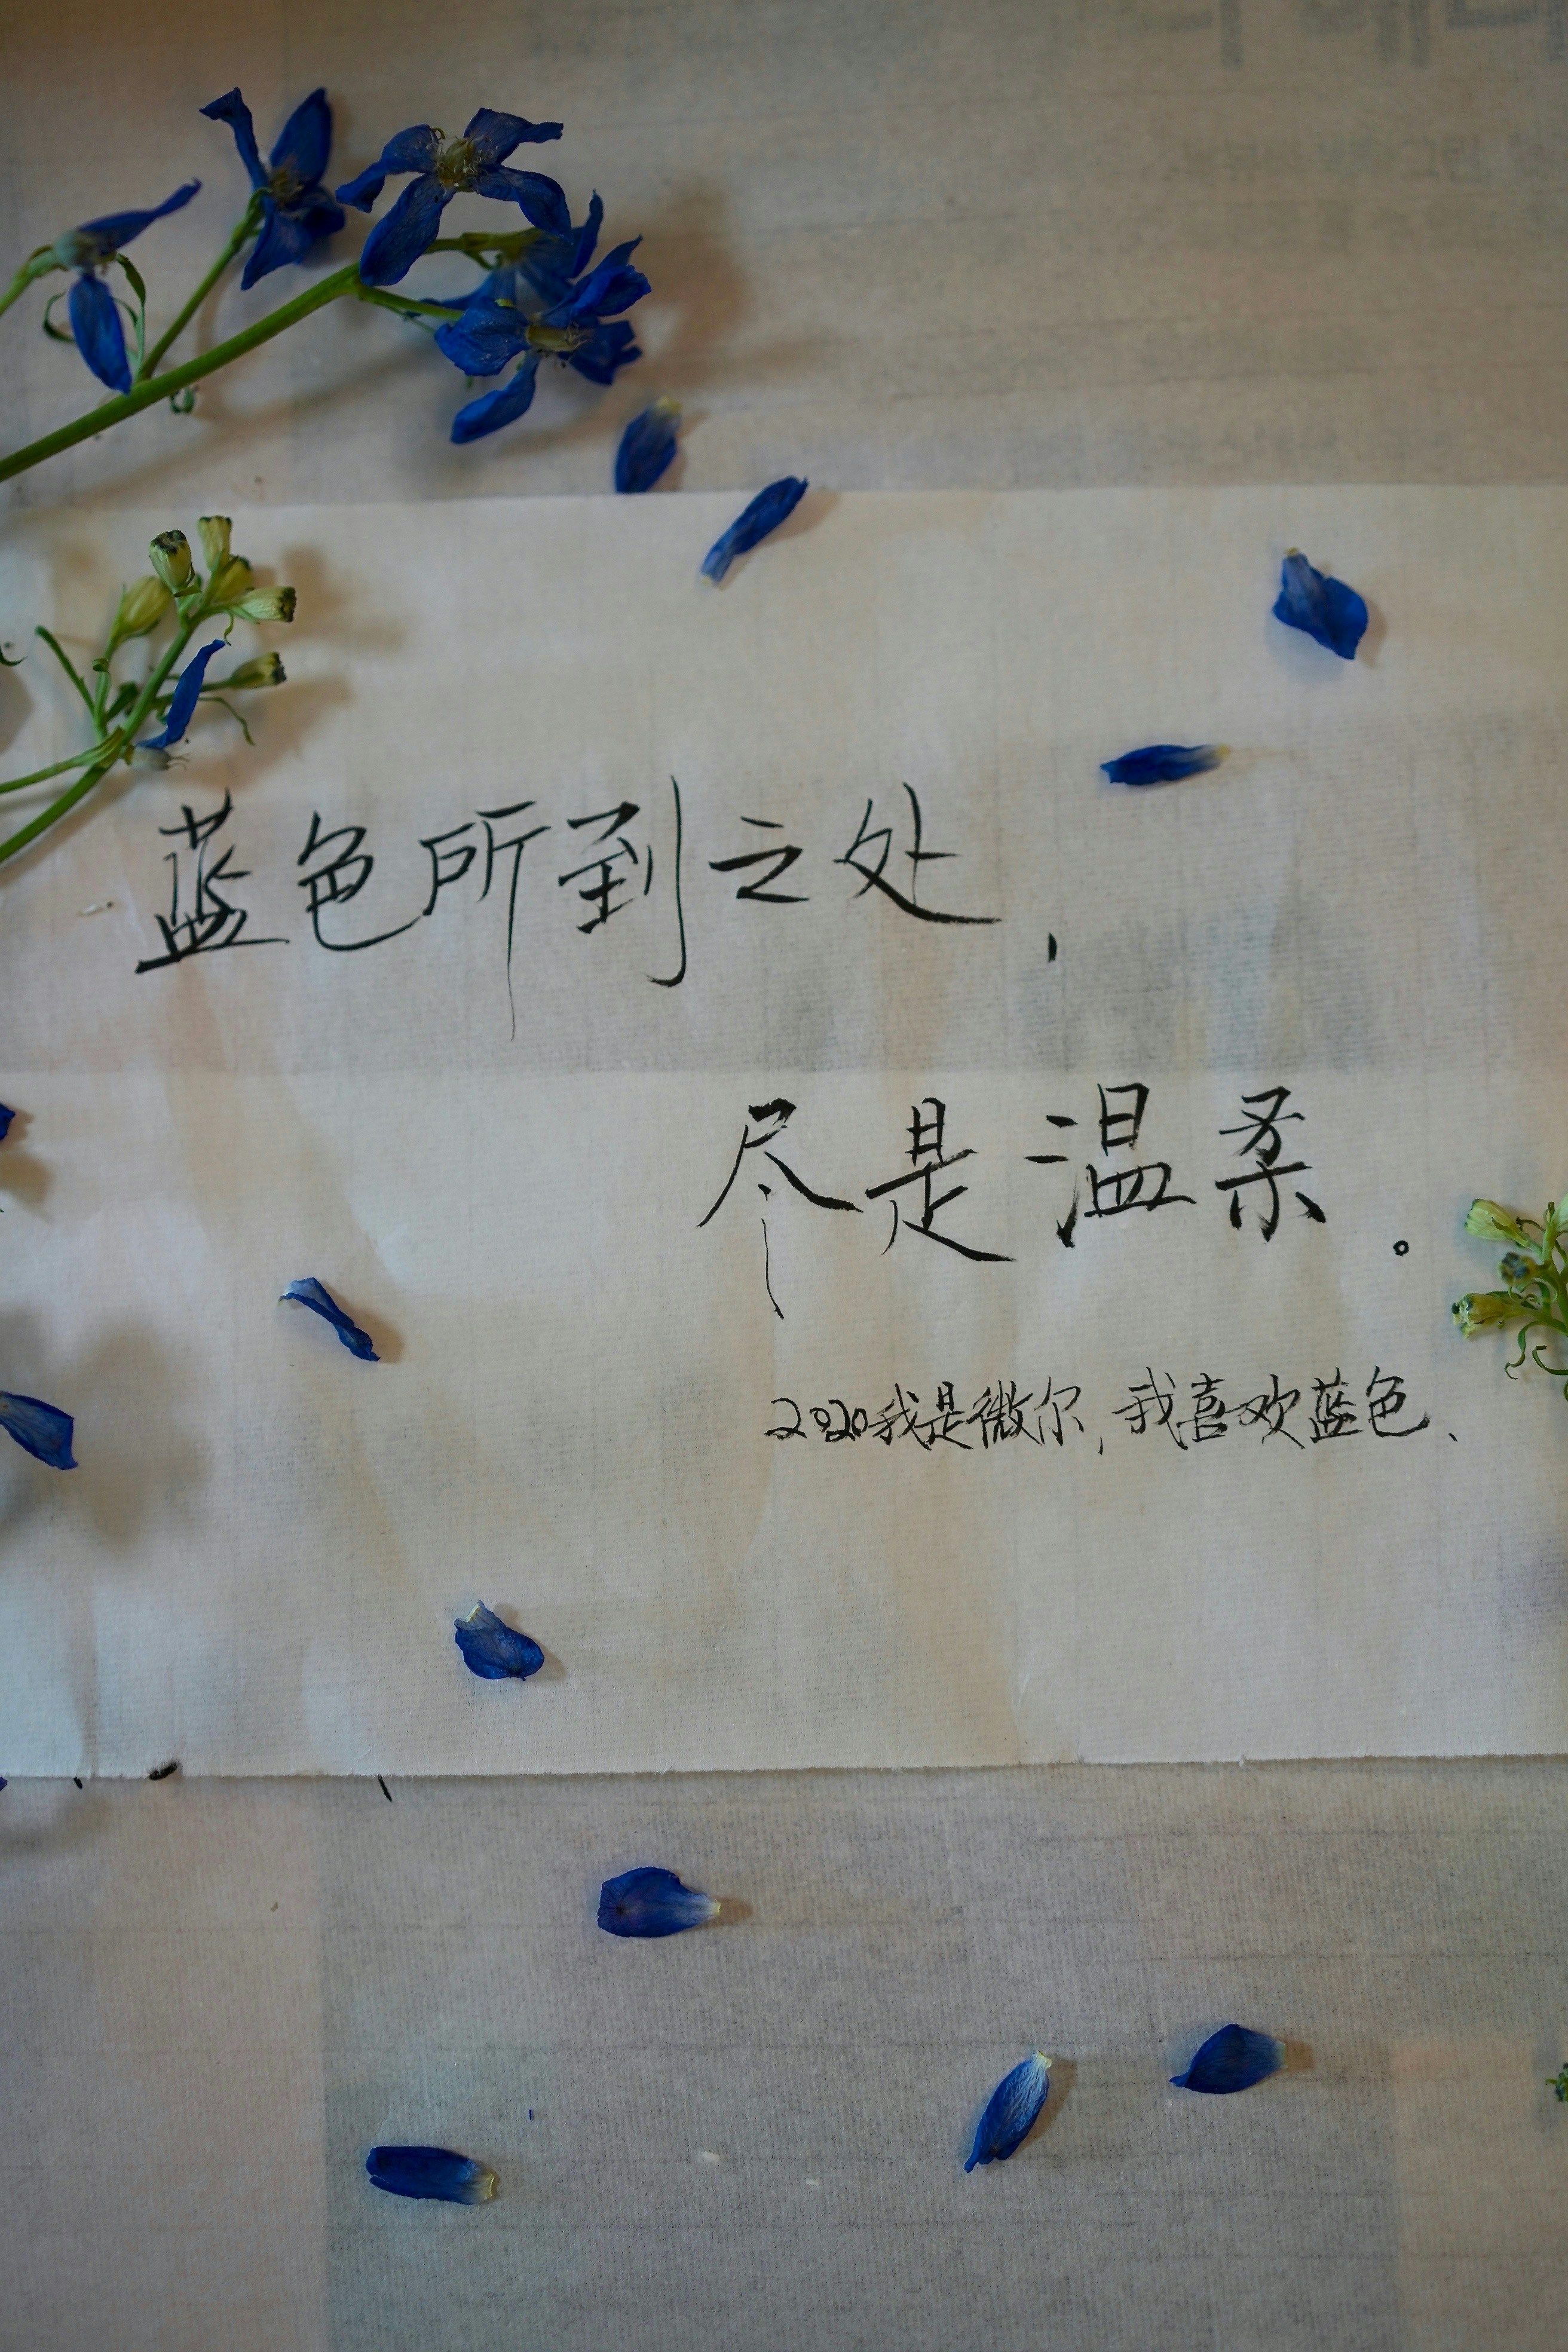 蓝色所到之处,
尽是温柔。
2020我是微尔,我喜欢蓝色、